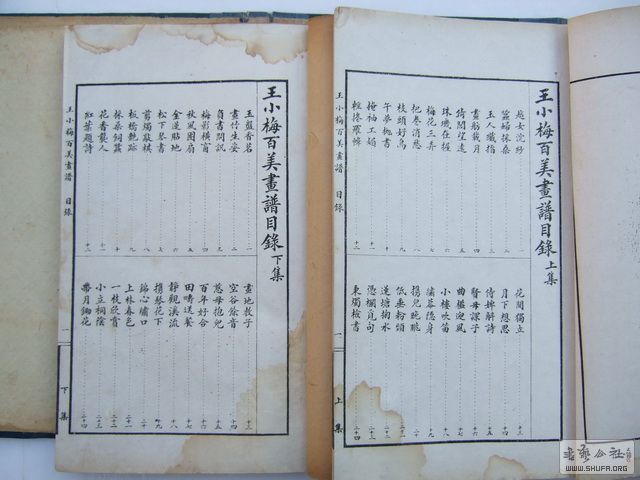 王小梅百美畫譜目錄上集
越女浣紗 一
蠶婦採桑 二
玉人纖指 三
畫舫載月 四
倚閣望遠 五
珠璣在握 六
梅花三弄 七
把卷消愁 八
枝頭好鳥 九
午夢梳頭 十
掩袖工媚 十一
輕拂羅幃 十二
花間獨立 十三
月下想思 十四
侍婢解詩 十五
賢母課子 十六
曲檻迎風 十七
小樓吹笛 十八
繡幕隱身 十九
攜兒晚眺 二十
低垂粉頸 二十一
蓮塘掬水 二十二
憑欄覓句 二十三
秉燭檢書 二十四
王小梅百美畫譜 目錄
一
上集
王小梅百美畫譜目錄下集
玉盤香茗 一
畫竹生姿 二
負書問訊 三
梅影橫窗 四
秋風團扇 五
金蓮貼地 六
松下琴書 七
剪燭敲棋 八
板橋艷跡 九
採桑飼蠶 十
花香襲人 十一
紅葉題詩 十二
畫地教子 十三
空谷餘音 十四
慈母抱兒 十五
百年好合 十六
田疇送餐 十七
靜觀溪流 十八
攜琴花下 十九
錦心繡口 二十
上林春色 二十一
一枝欣賞 二十二
小立桐陰 二十三
帶月鋤花 二十四
王小梅百美畫譜 目錄
一
下集
書藝公社
WWW.SHUFA.ORG